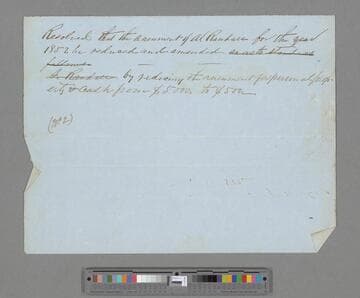 Resolved that the assessment of Al Rendoza for the year
1852 be reduced and amended so as to stand as
follows
by reducing the assessment of personal prop
erty & cash from $5000 to $500
(of 2)